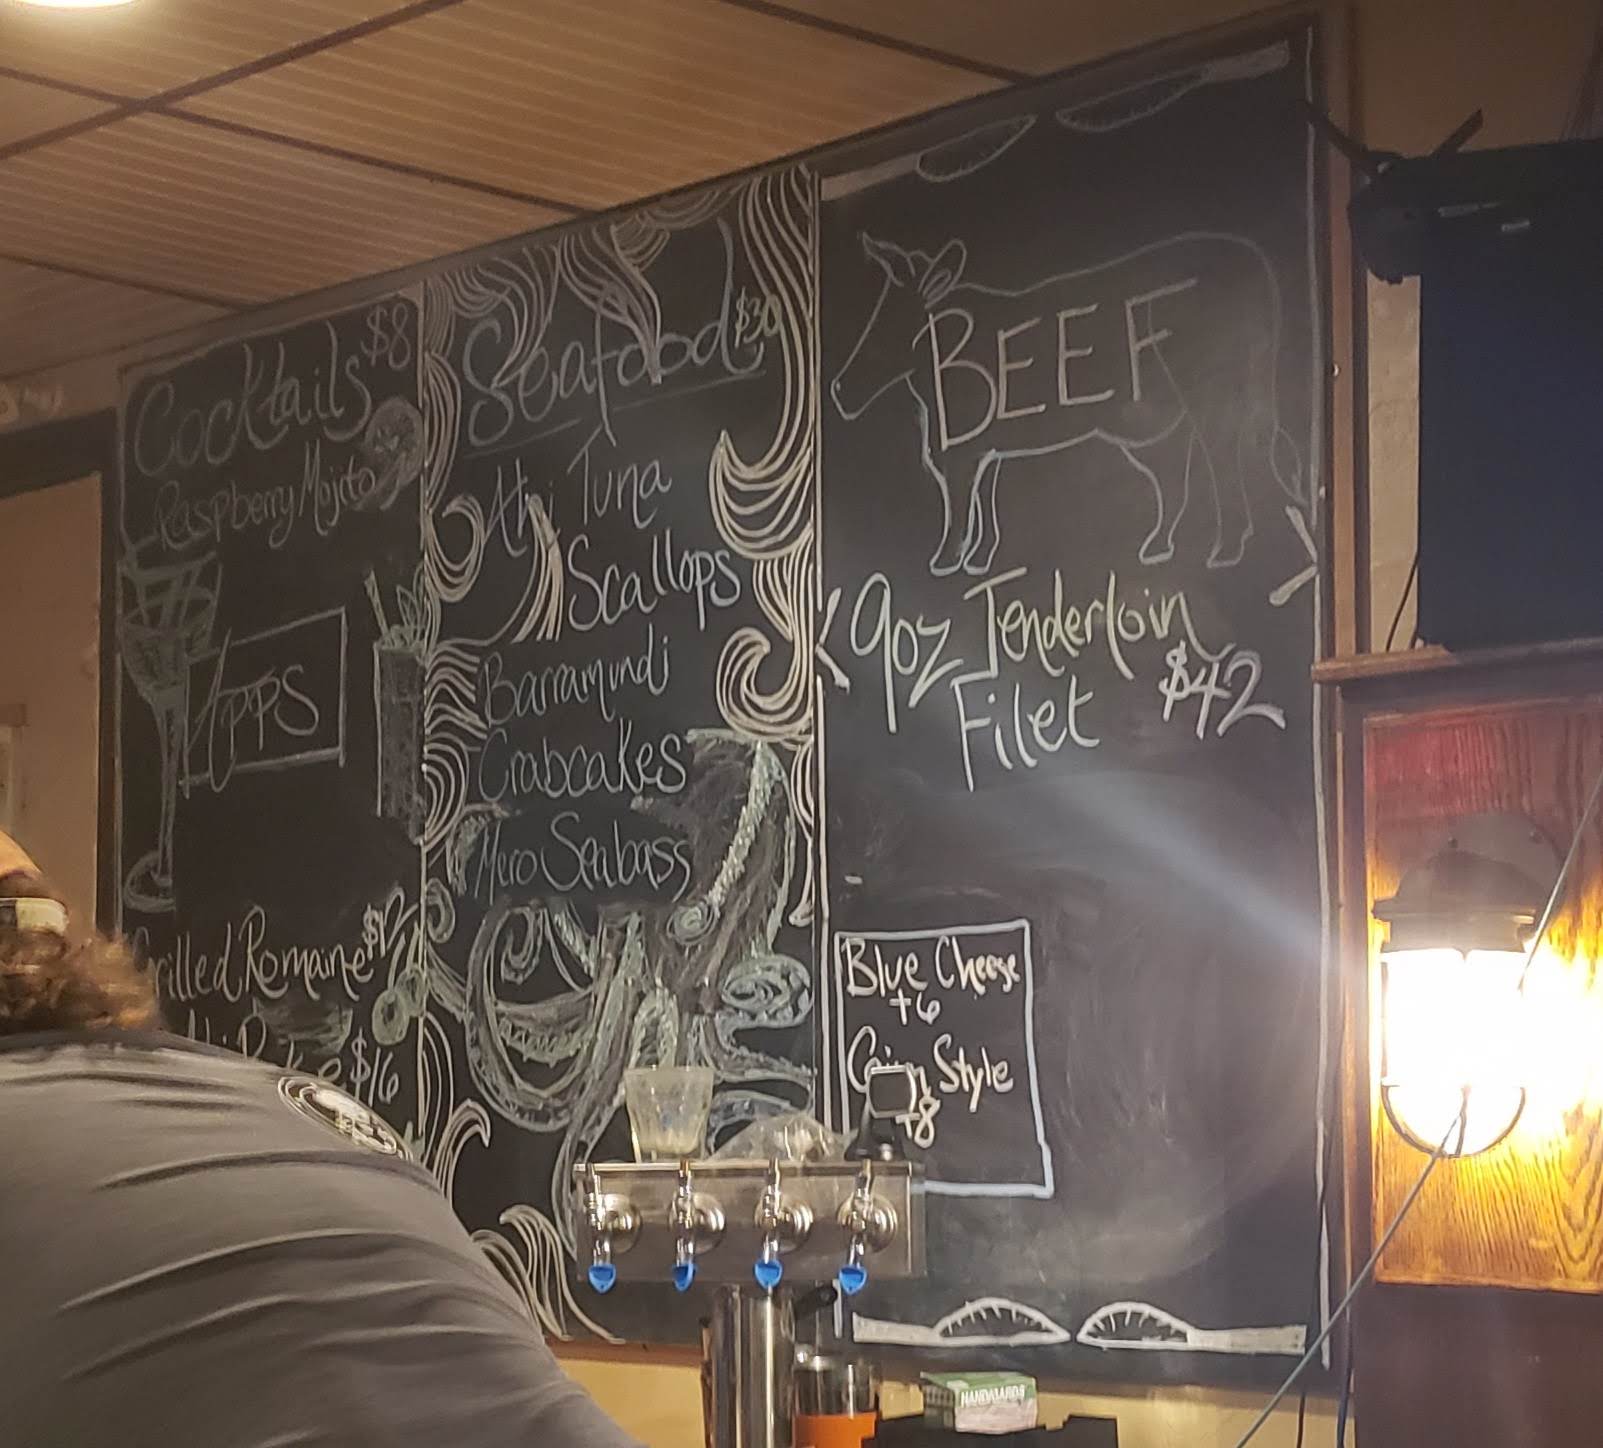 Cocktails $8
Raspberry Mojito
APPS
Grilled Romaine $12
$16
Seafood $30
Ahi Tuna
Scallops
Barramundi
Crabcakes
Mero Seabass
BEEF
9oz Tenderloin
Filet $42
Blue Cheese
+6
Style
+8
HANDGARDS